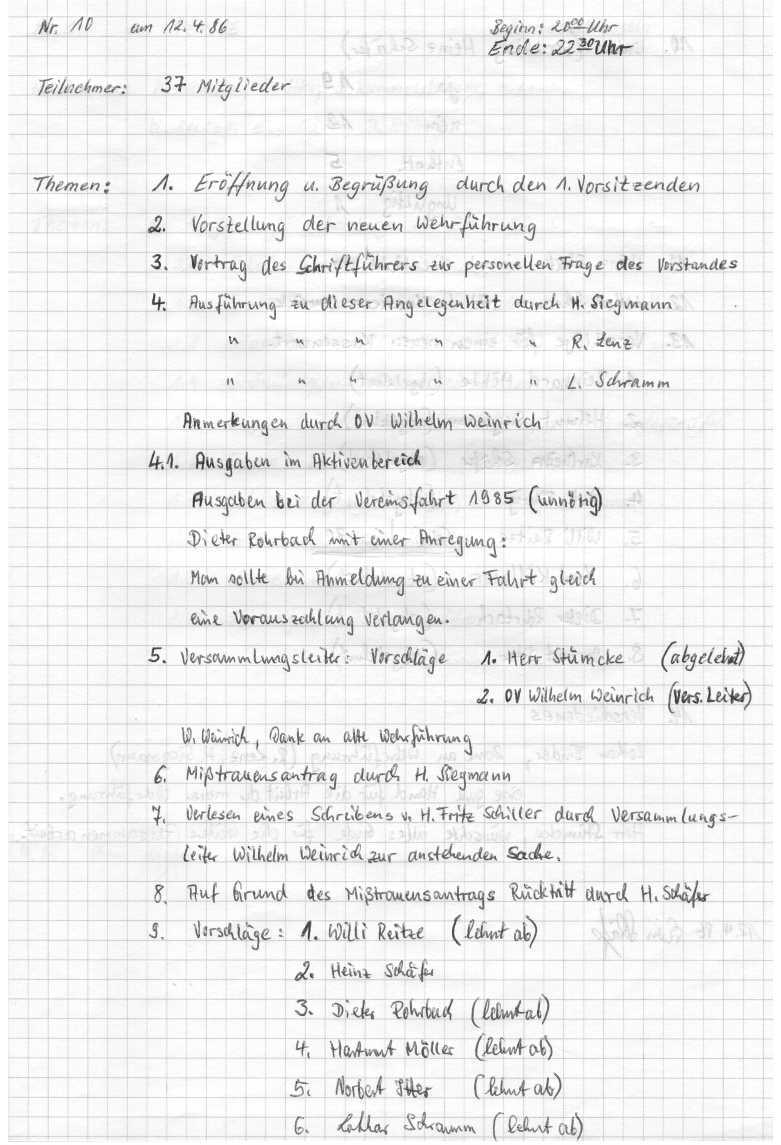 Nr. 10 am 12.4.86 Beginn: 20⁰⁰ Uhr
Ende: 22³⁰ Uhr
Teilnehmer: 37 Mitglieder
Themen: 1. Eröffnung u. Begrüßung durch den 1. Vorsitzenden
2. Vorstellung der neuen Wehrführung
3. Vortrag des Schriftführers zur personellen Frage des Vorstandes
4. Ausführung zu dieser Angelegenheit durch H. Siegmann
" " " " " R. Lenz
" " " " " L. Schramm
Anmerkungen durch OV Wilhelm Weinrich
4.1. Ausgaben im Aktivenbereich
Ausgaben bei der Vereinsfahrt 1985 (unnötig)
Dieter Rohrbach mit einer Anregung:
Man sollte bei Anmeldung zu einer Fahrt gleich
eine Vorauszahlung verlangen.
5. Versammlungsleiter: Vorschläge 1. Herr Stümcke (abgelehnt)
2. OV Wilhelm Weinrich (Vers. Leiter)
W. Weinrich, Dank an alte Wehrführung
6. Mißtrauensantrag durch H. Siegmann
7. Verlesen eines Schreibens v. H. Fritz Schiller durch Versammlungs-
leiter Wilhelm Weinrich zur anstehenden Sache.
8. Auf Grund des Mißtrauensantrags Rücktritt durch H. Schäfer
9. Vorschläge: 1. Willi Reitze (lehnt ab)
2. Heinz Schäfer
3. Dieter Rohrbach (lehnt ab)
4. Hartmut Möller (lehnt ab)
5. Norbert Itter (lehnt ab)
6. Lothar Schramm (lehnt ab)